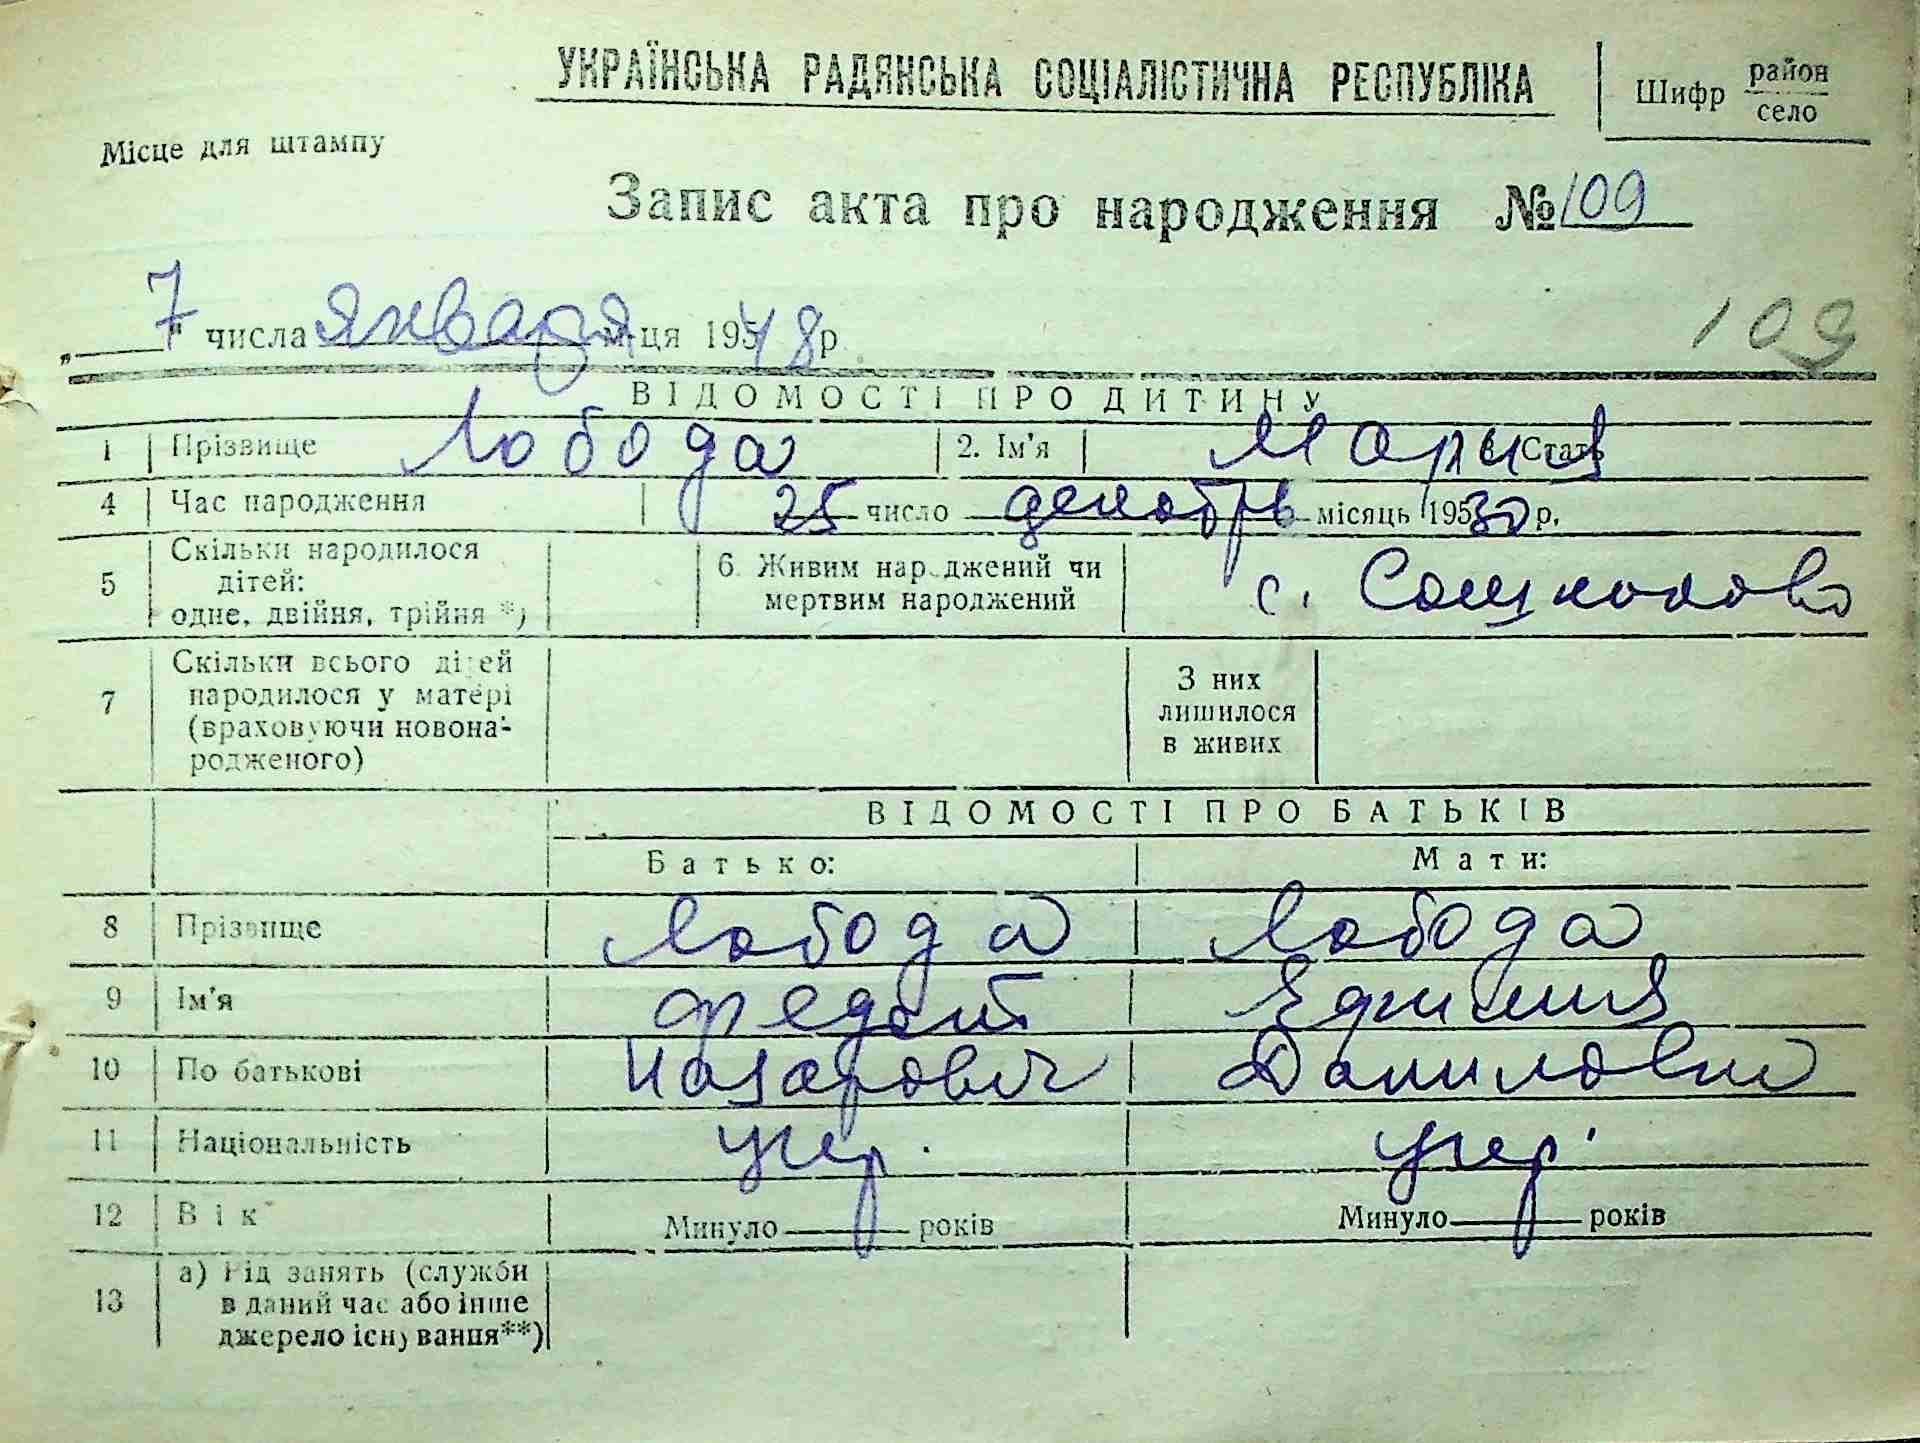 УКРАЇНСЬКА РАДЯНСЬКА СОЦІАЛІСТИЧНА РЕСПУБЛІКА
Шифр район
село
Місце для штампу
Запис акта про народження № 109
„ 7 " числа января м-ця 1948 р
109
ВІДОМОСТІ ПРО ДИТИНУ
1 Прізвище Лобода 2. Ім'я Мария Стать
4 Час народження 25 число декабрь місяць 19530 р.
5 Скільки народилося дітей: одне, двійня, трійня *) 6. Живим народжений чи мертвим народжений с.
7 Скільки всього дітей народилося у матері (враховуючи новона-родженого) З них лишилося в живих
ВІДОМОСТІ ПРО БАТЬКІВ
Батько: Мати:
8 Прізвище Лобода Лобода
9 Ім'я Федот
10 По батькові Назарович Даниловна
11 Національність укр. укр.
12 Вік Минуло років Минуло років
13 а) Рід занять (служби в даний час або інше джерело існування**)